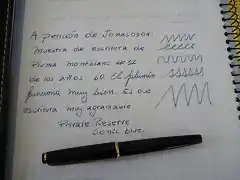 A petición de Jonasosa
muestra de escritura de
Pluma montblanc nº 32
de los años 60. El plumín
funciona muy bien. Es de
escritura muy agradable
Private Reserve
Sonic blue.